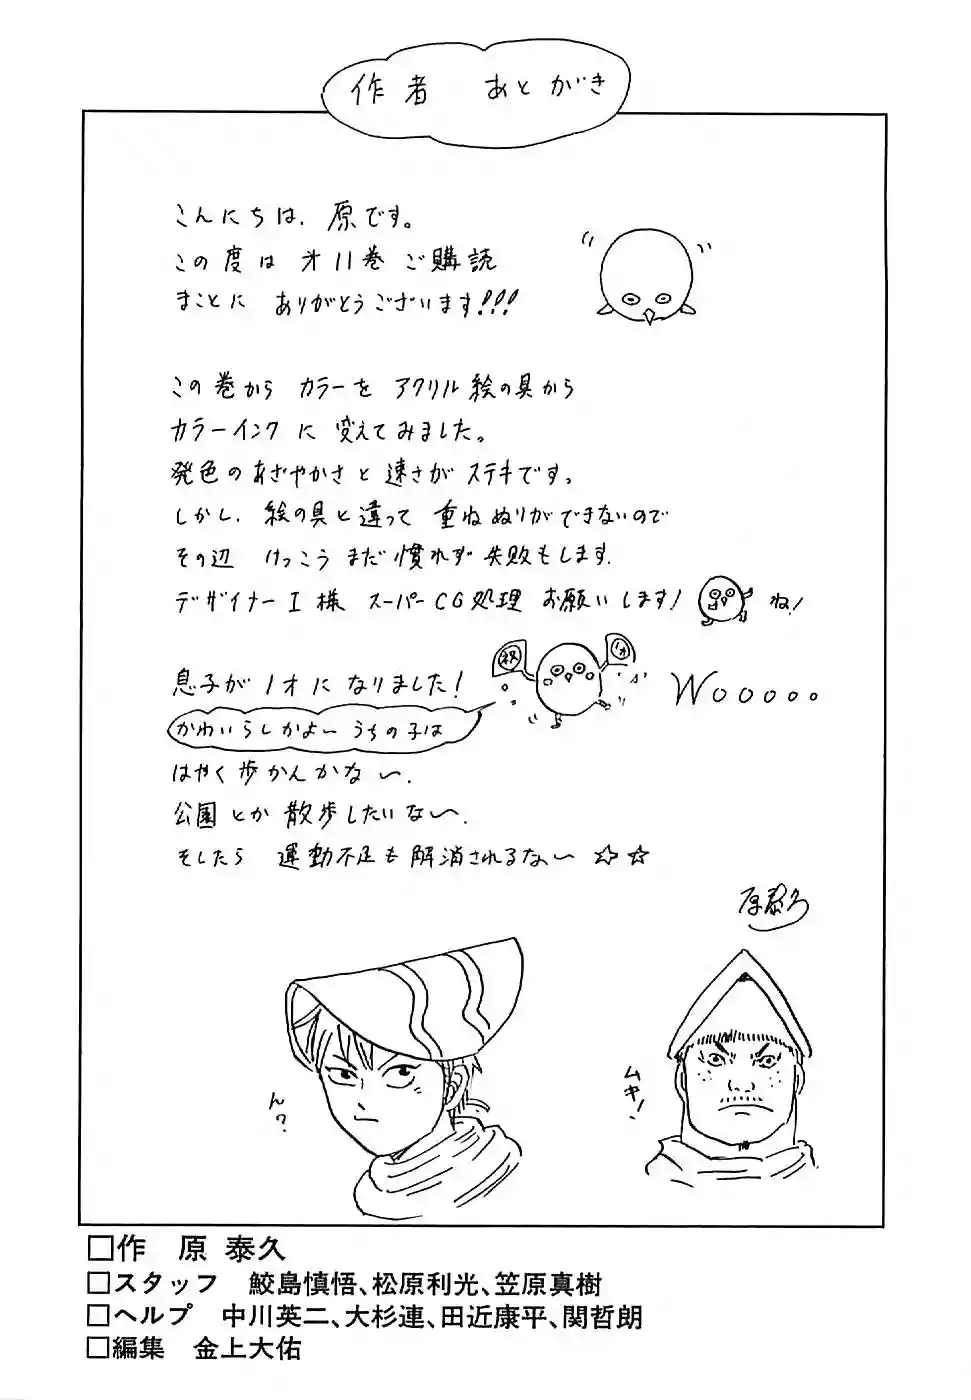 作者　あとがき
こんにちは、原です。
この度は 才11巻 ご購読
まことに ありがとうございます!!!
この巻から カラーを アクリル絵の具から
カラーインク に 変えてみました。
発色のあざやかさと 速さが ステキです。
しかし、絵の具と違って 重ねぬりができないので
その辺 けっこう まだ 慣れず 失敗もします。
デザイナーI様 スーパーCG処理 お願いします! ね!
祝 1才
息子が 1才に なりました! Wooooo
かわいらしかよ〜 うちの子は
はやく歩かんかな〜。
公園とか 散歩したいな〜。
そしたら 運動不足も解消されるな〜 ☆☆
原泰久
ん?
ムキ!
□作　原 泰久
□スタッフ　鮫島慎悟、松原利光、笠原真樹
□ヘルプ　中川英二、大杉連、田近康平、関哲朗
□編集　金上大佑